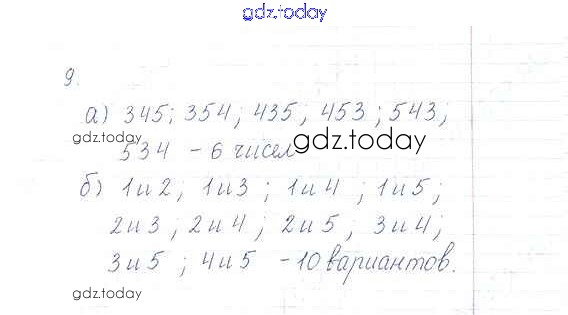 gdz.today
9.
а) 345; 354; 435, 453; 543,
gdz.today
534 - 6 чисел
gdz.today
б) 1 и 2, 1 и 3; 1 и 4; 1 и 5;
2 и 3; 2 и 4; 2 и 5, 3 и 4;
3 и 5; 4 и 5 - 10 вариантов.
gdz.today